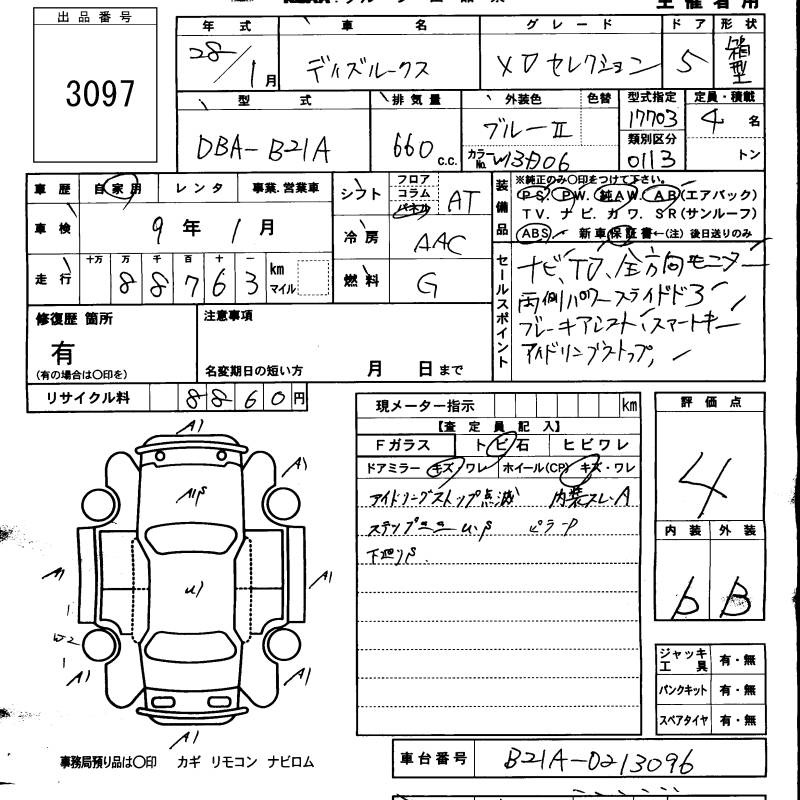 主催者用
出品番号
3097
年式 車名 グレード ドア 形状
28/1月 デイズルークス XDセレクション 5 箱型
型式 排気量 外装色 色替 型式指定 定員・積載
DBA-B21A 660 c.c. ブルーII 17703 4名
カラーNo. 類別区分 0113 トン
車歴 自家用 レンタ 事業.営業車
車検 9年1月
走行 十万 万 千 百 十 一
88763 km マイル
シフト フロア コラム パネル AT
冷房 AAC
燃料 G
装備品
※純正のみ〇印をつけて下さい。
PS. PW. 純AW. AB(エアバック)
TV. ナビ. カワ. SR(サンルーフ)
ABS 新車保証書←(注)後日送りのみ
セールスポイント
ナビ、TV、全方向モニター
両側パワースライドドア
ブレーキアシスト、スマートキー
アイドリングストップ,
修復歴 箇所
有
(有の場合は〇印を)
注意事項
名変期日の短い方 月 日まで
リサイクル料 8860円
現メーター指示 km
【査定員記入】
Fガラス トビ石 ヒビワレ
ドアミラー キズ・ワレ ホイール(CP) キズ・ワレ
アイドリングストップ点滅 内装スレ.A
ステップ ピラーP
下廻りS.
評価点
4
内装 外装
b B
ジャッキ工具 有・無
パンクキット 有・無
スペアタイヤ 有・無
A1
A1
A1
A1
A1
A1
A1
A1
事務局預り品は〇印 カギ リモコン ナビロム
車台番号 B21A-0213096